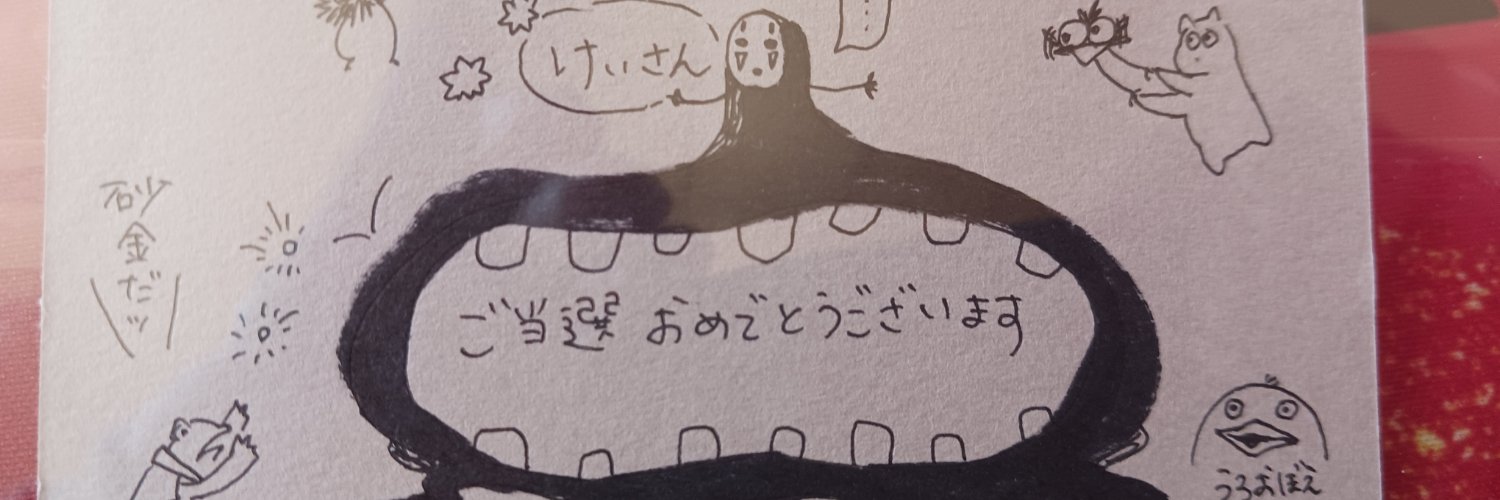 けいさん
……
砂金だッ
ご当選 おめでとうございます
うろおぼえ